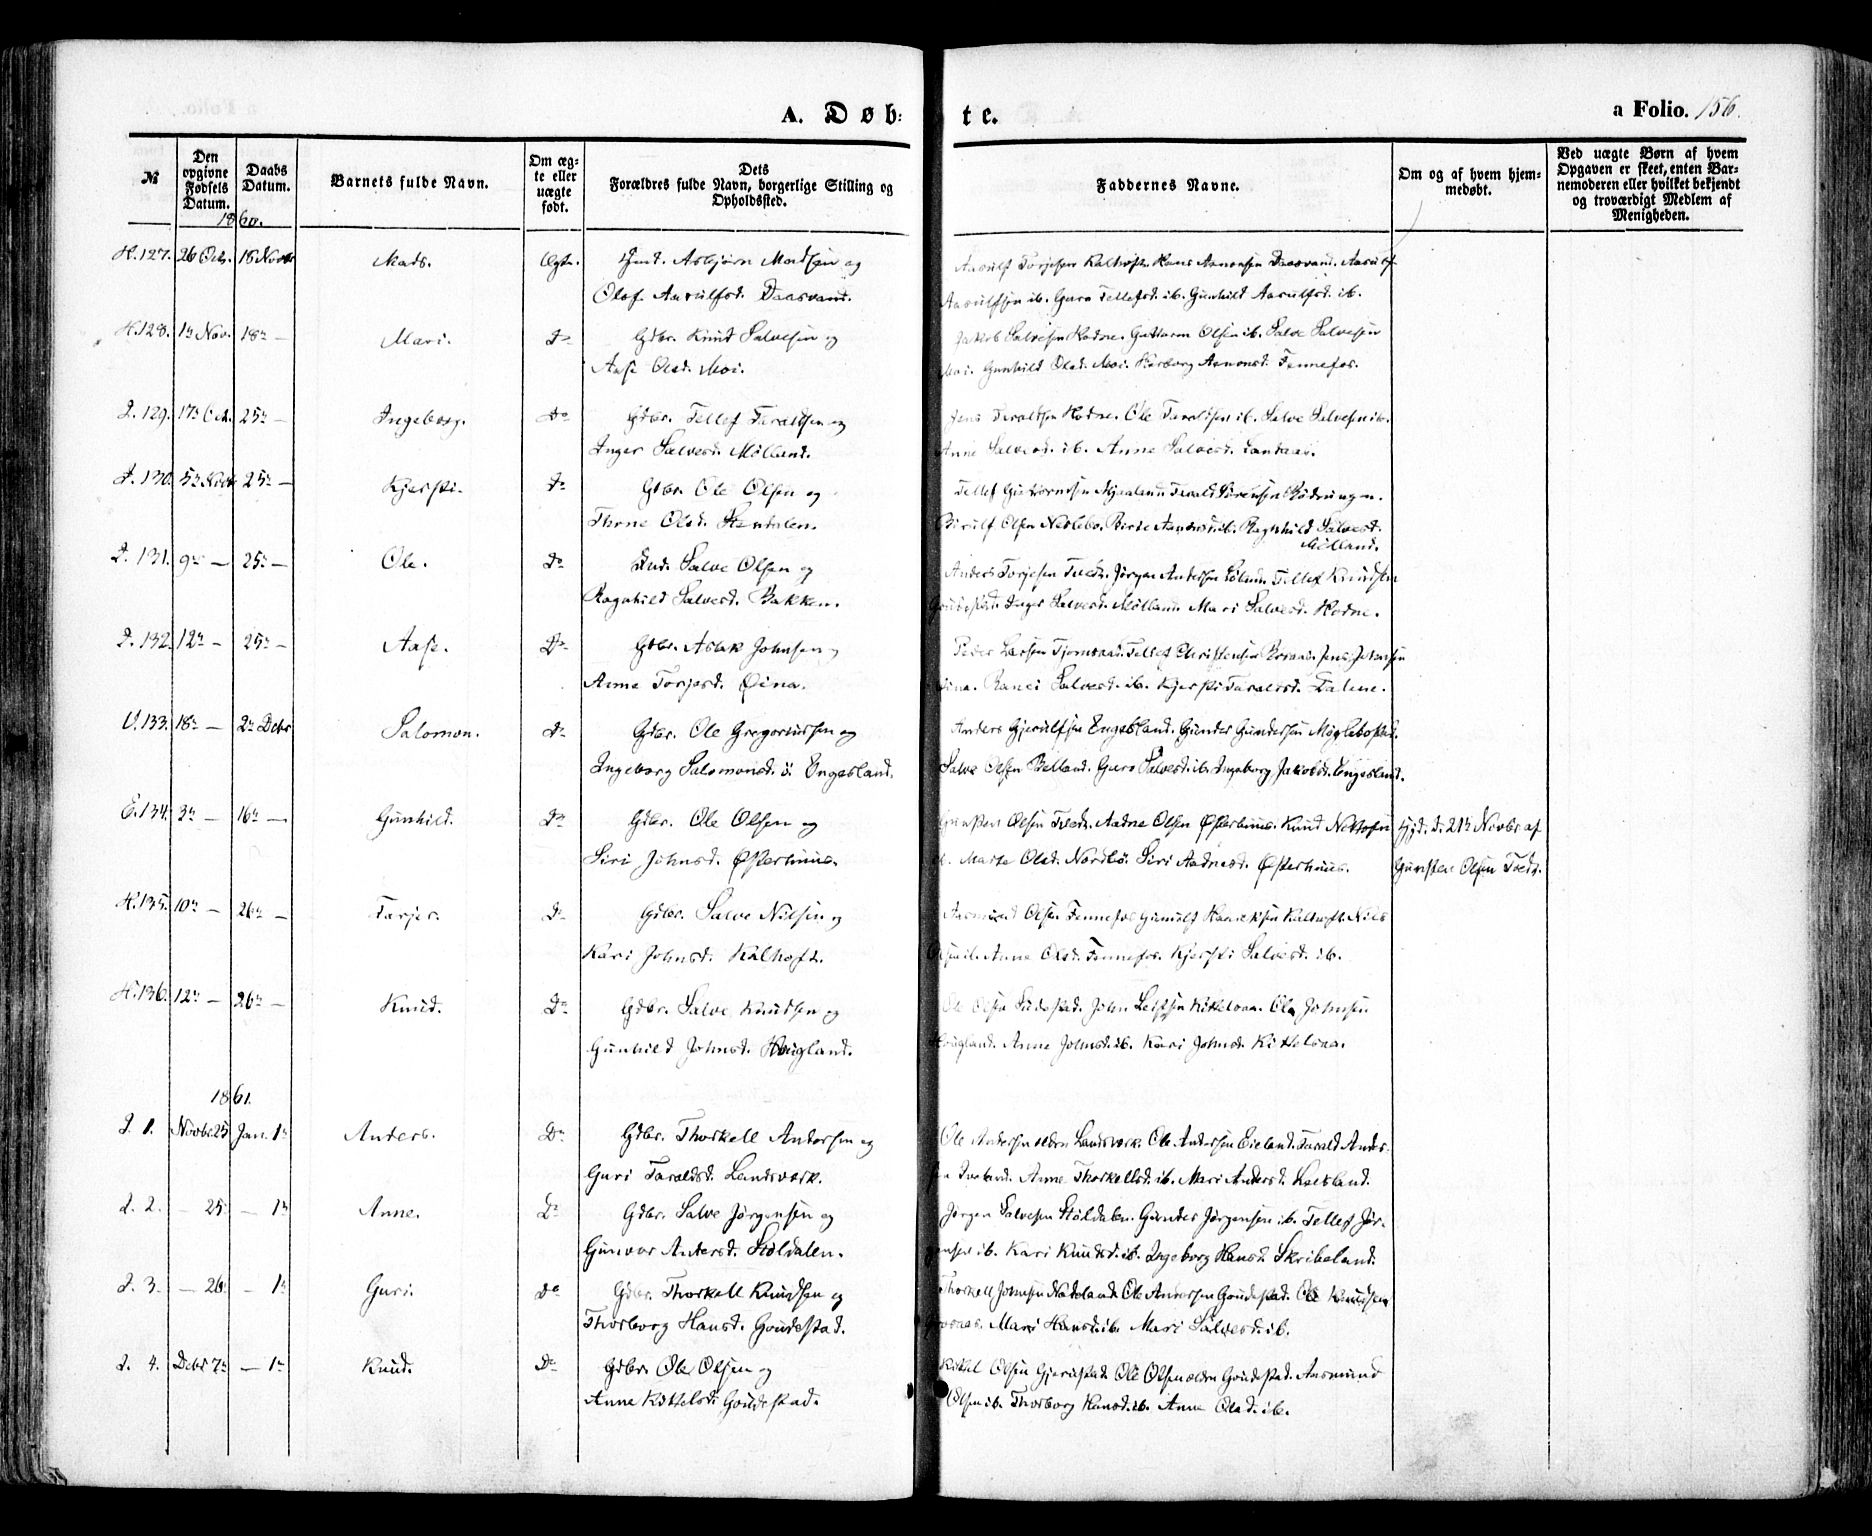 A. Døb: te.
a Folio. 156.
№
Den opgivne Fødsels Datum.
Daabs Datum.
Barnets fulde Navn.
Om ægte eller uægte født.
Dets Forældres fulde Navn, borgerlige Stilling og Opholdssted.
Faddernes Navne.
Om og af hvem hjemmedøbt.
Ved uægte Børn af hvem Opgaven er skeet, enten Barnemoderen eller hvilket bekjendt og troværdigt Medlem af Menigheden.
1860.
H. 127. 26 Octr. 18 Novbr Mads. Ægte. Asbjørn Madsen og
Olaf Aasulfsd. Daasvand.
Aasulf Torjesen Kalhoft. Hans Daasvand. Aasulf
Aasulfsen ib. Guro Tellefsd. ib. Gunhild Aasulfsd. ib.
H. 128. 1ste Nov. 18de — Mari. Do Gdbr. Knud Salvesen og
Aase Olsd. Moi.
Jakob Salvesen Hodne. Guttorm Olsen ib. Salve Salvesen
Moi. Gunhild Olsd. Moi. Aanonsd. Fennefos.
I. 129. 17de Oct. 25de — Ingeborg. Do Gdbr. Tellef Taraldsen og
Inger Salvesd. Mølland.
Jens Taraldsen Hodne. Ole Taraldsen ib. Salve Salvesen ib.
Anne Salvesd. ib. Anne Salvesd. Landaas.
I. 130. 5te Novbr 25de — Kjersti. Do Gdbr. Ole Olsen og
Thone Olsd. Stendalen.
Tellef Guttormsen Mjaaland Tarald Sørensen
Olsen Neslebo. ib. Ragnhild Salvesd.
Mølland.
I. 131. 9de — 25de — Ole. Do Ind. Salve Olsen og
Ragnhild Salvesd. Bakken.
Anders Torjesen Tveit. Jørgen Andersen Tellef Knudsen
Inger Salvesd. Mølland. Mari Salvesd. Hodne.
I. 132. 12te — 25de — Aase. Do Gdbr. Aslak Johnsen og
Anne Torjesd. Øina.
Peder Larsen Tellef Christensen Jens Jensen
Øina. Salvesd. ib. Kjersti Taraldsd.
V. 133. 18de — 2den Decbr Salomon. Do Gdbr. Ole Gregoriussen og
Ingeborg Salomonsd. ö. Engesland.
Anders Gjerulfsen Engesland. Gunder Gundersen Møglebostad.
Salve Olsen Belland. Guro Salvesd. ib. Ingeborg Jakobsd. Engesland.
E. 134. 3die — 16de — Gunhild. Do Gdbr. Ole Olsen og
Siri Johnsd. Østerhuus.
Gunsten Olsen Tveit. Aadne Olsen Østerhuus. Knud
Marte Olsd. Nordbö. Siri Aadnesd. Østerhuus.
Hjd. d. 21de Novbr af
Gunsten Olsen Tveit.
H. 135. 10de — 26de — Torjer. Do Gdbr. Salve Nilsen og
Kari Johnsd. Kalhoft.
Aasmund Olsen Fennefos Kalhoft Niels
Anne Olsd. Fennefos. Kjersti Salvesd. ib.
H. 136. 12te — 26de — Knud. Do Gdbr. Salve Knudsen og
Gunhild Johnsd. Hougland.
Ole John Kittelsaa. Ole Johnsen
Hougland. Anne Johnsd. ib. Kari Johnsd. Kittelsaa.
1861.
I. 1. Novbr 25 Jan. 1ste Anders. Do Gdbr. Thorkell Andersen og
Guri Taraldsd. Landsverk.
Ole Andersen ældre Landsverk. Ole Andersen Eieland. Tarald Ander-
sen Iveland. Anne Thorkellsd. ib. Mari Andersd.
I. 2. — 25 — 1ste Anne. Do Gdbr. Salve Jørgensen og
Gunvor Andersd. Støldalen.
Jørgen Salvesen Støldalen. Gunder Jørgensen ib. Tellef Jør-
gensen ib. Kari Knudsd. ib. Ingeborg Hansd. Skribeland.
I. 3. — 26 — 1ste Guri. Do Gdbr. Thorkell Knudsen og
Thorborg Hansd. Goudestad.
Thorkell Johnsen Ole Andersen Goudestad. Ole Knudsen
Mari Hansd. ib. Mari Salvesd. ib.
I. 4. Decbr 7de — 1ste Knud. Do Gdbr. Ole Olsen og
Anne Kittelsd. Goudestad.
Kittel Olsen Gjerustad Ole Olsen ældre Goudestad. Aasmund
Olsen ib. Thorborg Hansd. ib. Anne Olsd. ib.